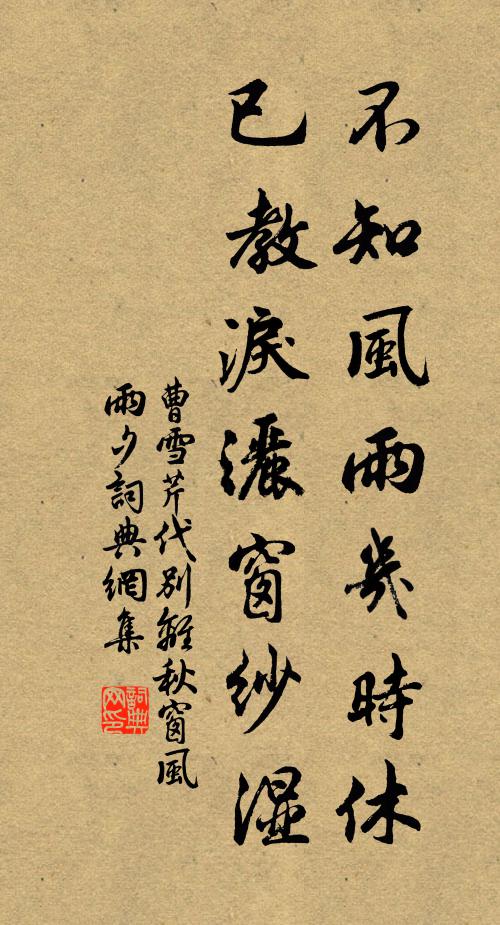 不知風雨幾時休
已教淚灑窗紗溼
曹雪芹代別離秋窗風
雨夕詞典網集
詞典
网印